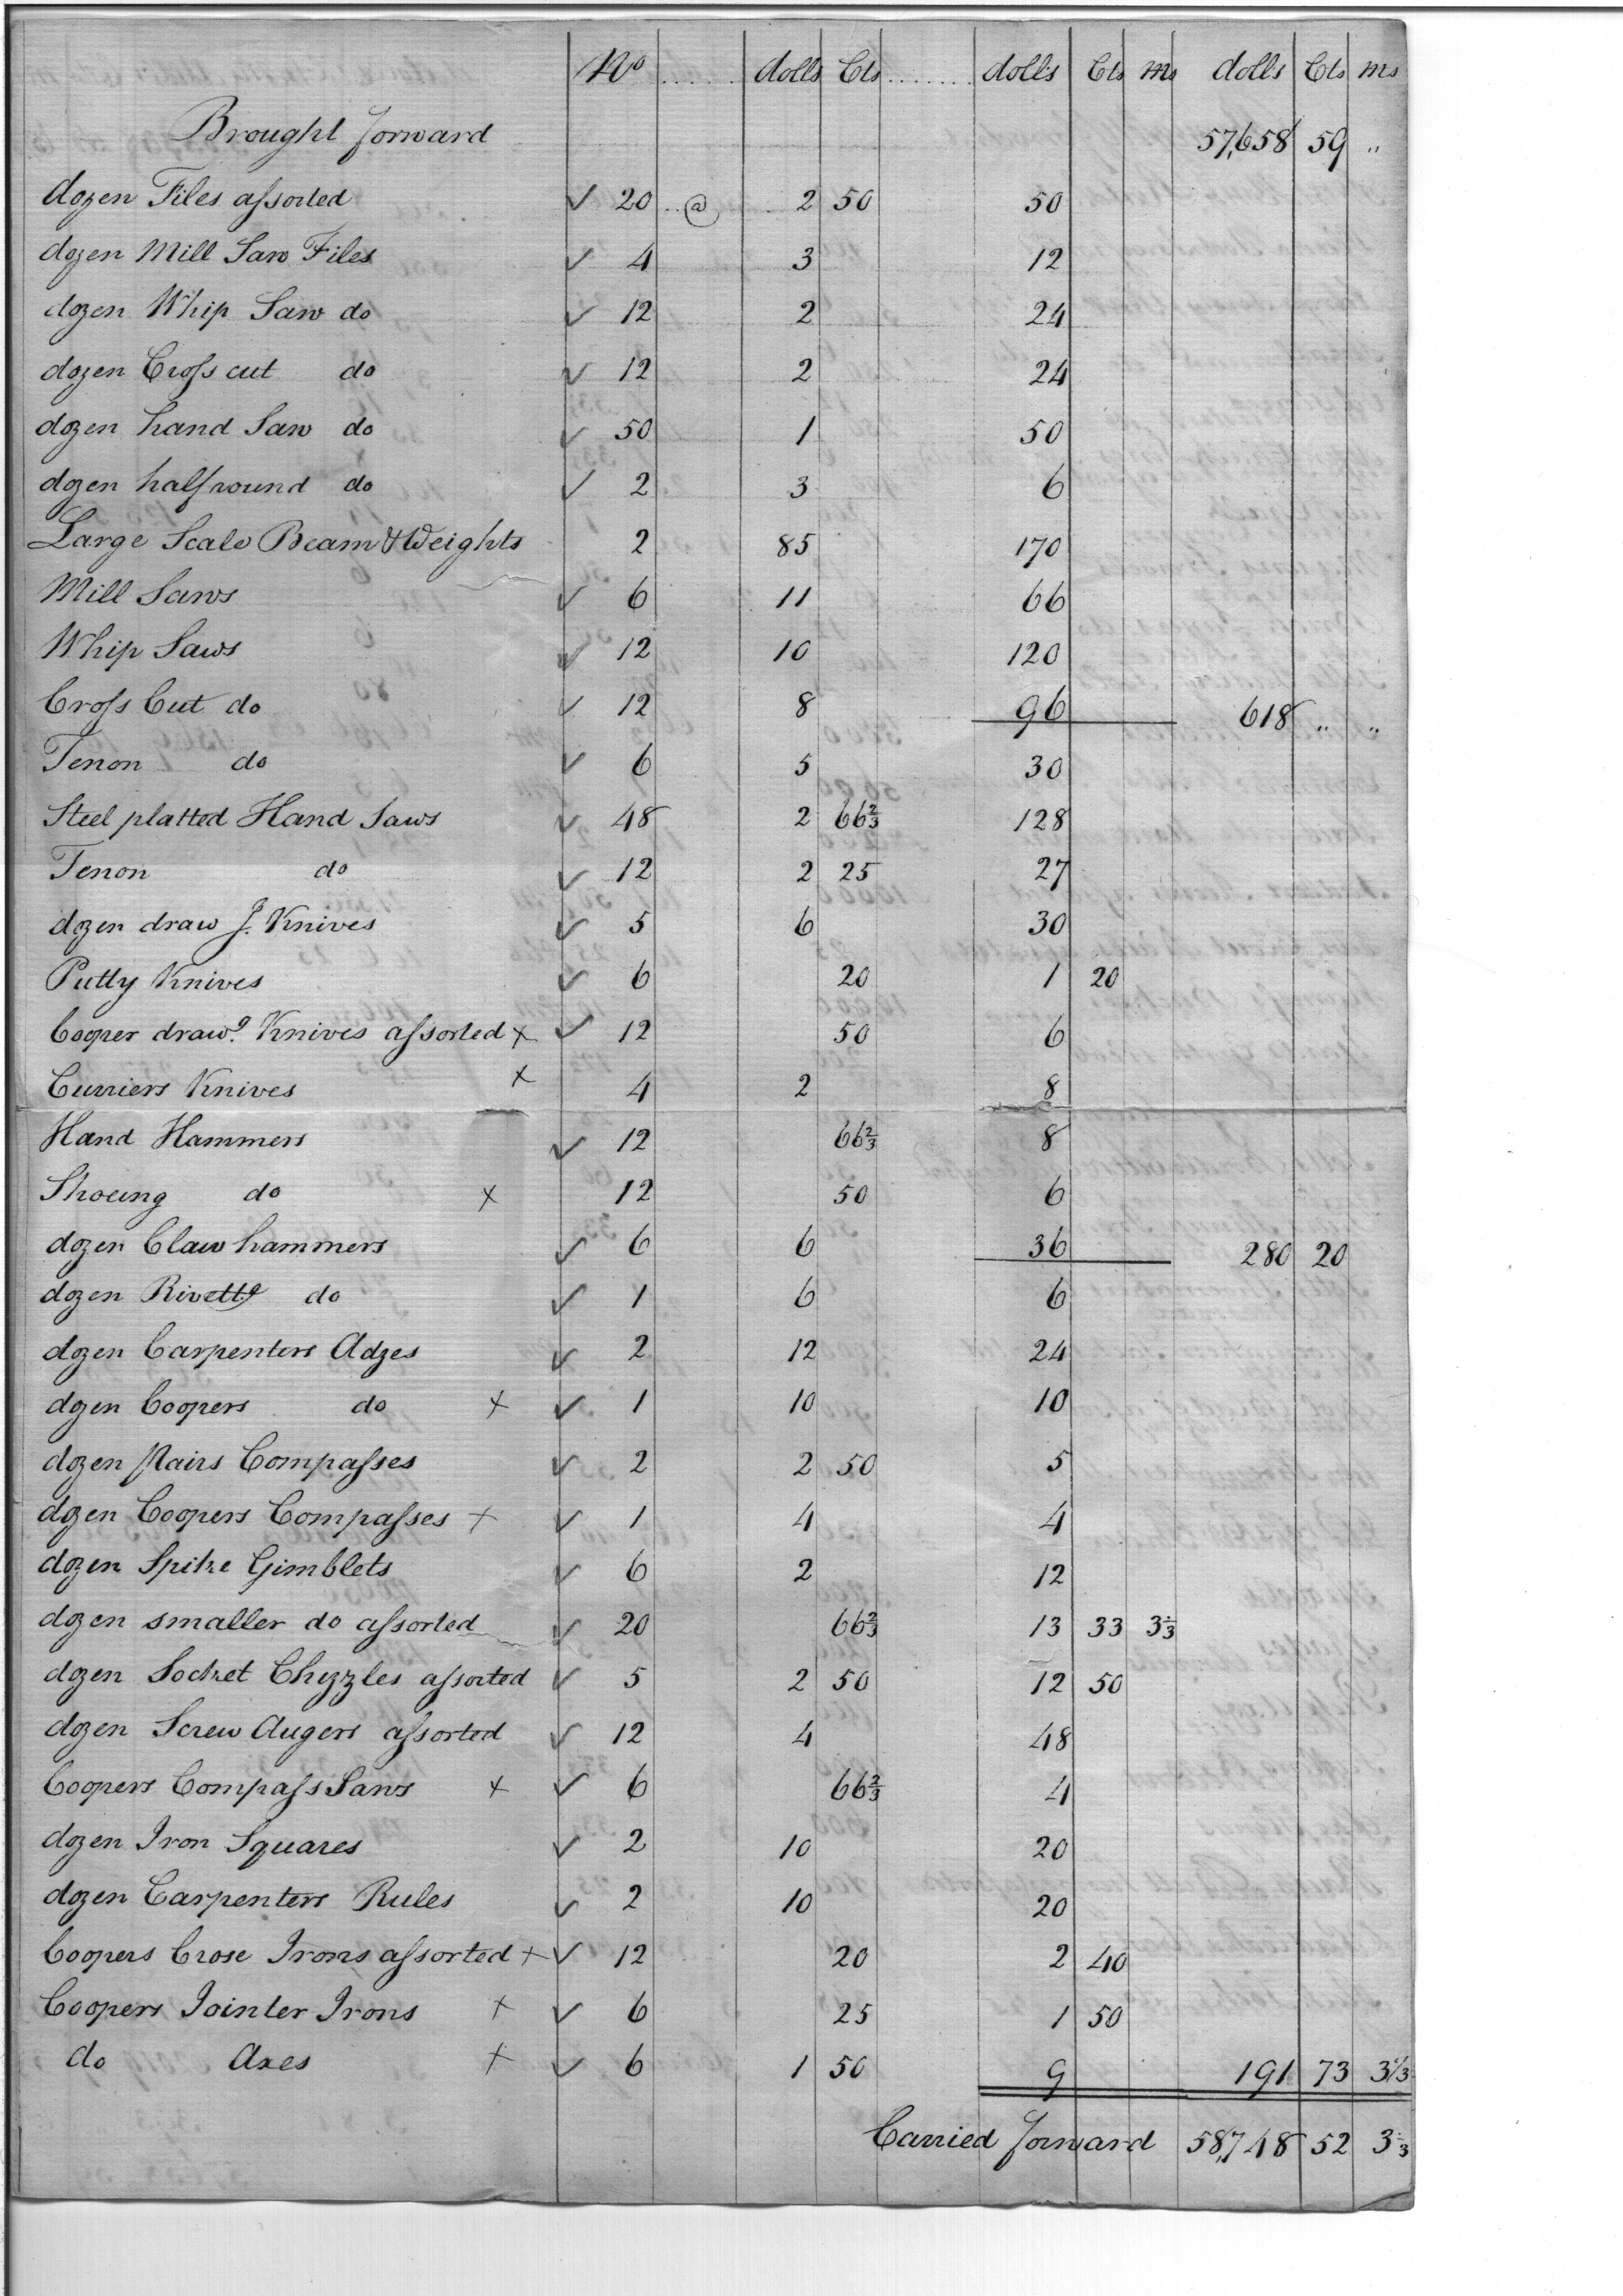 No ..... dolls Cts ....... dolls Cts Ms dolls Cts Ms
Brought forward 57,658 59 "
dozen Files aſsorted ✓ 20 .. @ .. 2 50 50
dozen Mill Saw Files ✓ 4 3 12
dozen Whip Saw do ✓ 12 2 24
dozen Croſs cut do ✓ 12 2 24
dozen hand Saw do ✓ 50 1 50
dozen half round do ✓ 2 3 6
Large Scale Beam & Weights 2 85 170
Mill Saws ✓ 6 11 66
Whip Saws ✓ 12 10 120
Croſs Cut do ✓ 12 8 96 618 " "
Tenon do ✓ 6 5 30
Steel platted Hand Saws ✓ 48 2 66⅔ 128
Tenon do ✓ 12 2 25 27
dozen draw g. Knives ✓ 5 6 30
Putty Knives ✓ 6 20 1 20
Cooper draw.g Knives aſsorted × ✓ 12 50 6
Curriers Knives × 4 2 8
Hand Hammers ✓ 12 66⅔ 8
Shoeing do × 12 50 6
dozen Claw hammers ✓ 6 6 36 280 20
dozen Rivettg do ✓ 1 6 6
dozen Carpenters Adzes ✓ 2 12 24
dozen Coopers do × ✓ 1 10 10
dozen Pairs Compaſses ✓ 2 2 50 5
dozen Coopers Compaſses × ✓ 1 4 4
dozen Spike Gimblets ✓ 6 2 12
dozen smaller do aſsorted ✓ 20 66⅔ 13 33 3⅓
dozen Socket Chizzles aſsorted ✓ 5 2 50 12 50
dozen Screw Augers aſsorted ✓ 12 4 48
Coopers Compaſs Saws × ✓ 6 66⅔ 4
dozen Iron Squares ✓ 2 10 20
dozen Carpenters Rules ✓ 2 10 20
Coopers Crose Irons aſsorted × ✓ 12 20 2 40
Coopers Jointer Irons × ✓ 6 25 1 50
do Axes × ✓ 6 1 50 9 191 73 3⅓
Carried forward 58,748 52 3⅓